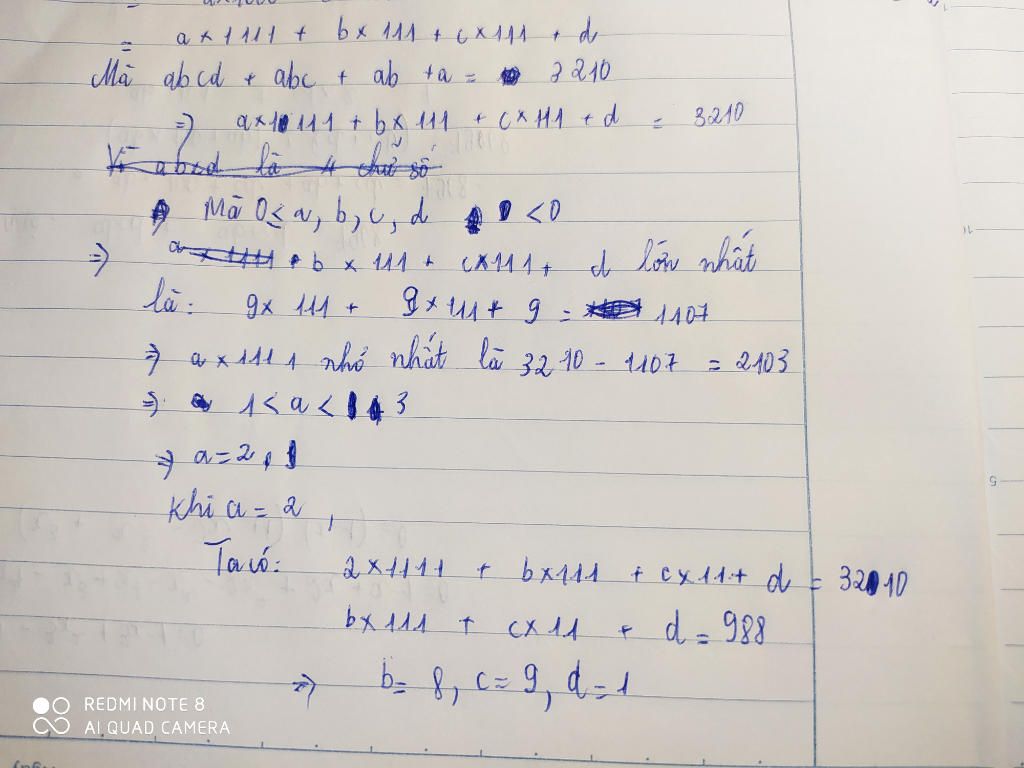 = a × 1111 + b × 111 + c × 111 + d
Mà abcd + abc + ab + a = 3210
=> a × 1111 + b × 111 + c × 111 + d = 3210
Vì abcd là 4 chữ số
Mà 0 ≤ a, b, c, d < 0
=> a × 1111 + b × 111 + c × 111 + d lớn nhất
là: 9 × 111 + 9 × 111 + 9 = 1107
=> a × 1111 nhỏ nhất là 3210 - 1107 = 2103
=> 1 < a < 3
=> a = 2
Khi a = 2,
Ta có: 2 × 1111 + b × 111 + c × 11 + d = 3210
b × 111 + c × 11 + d = 988
=> b = 8, c = 9, d = 1
REDMI NOTE 8
AI QUAD CAMERA